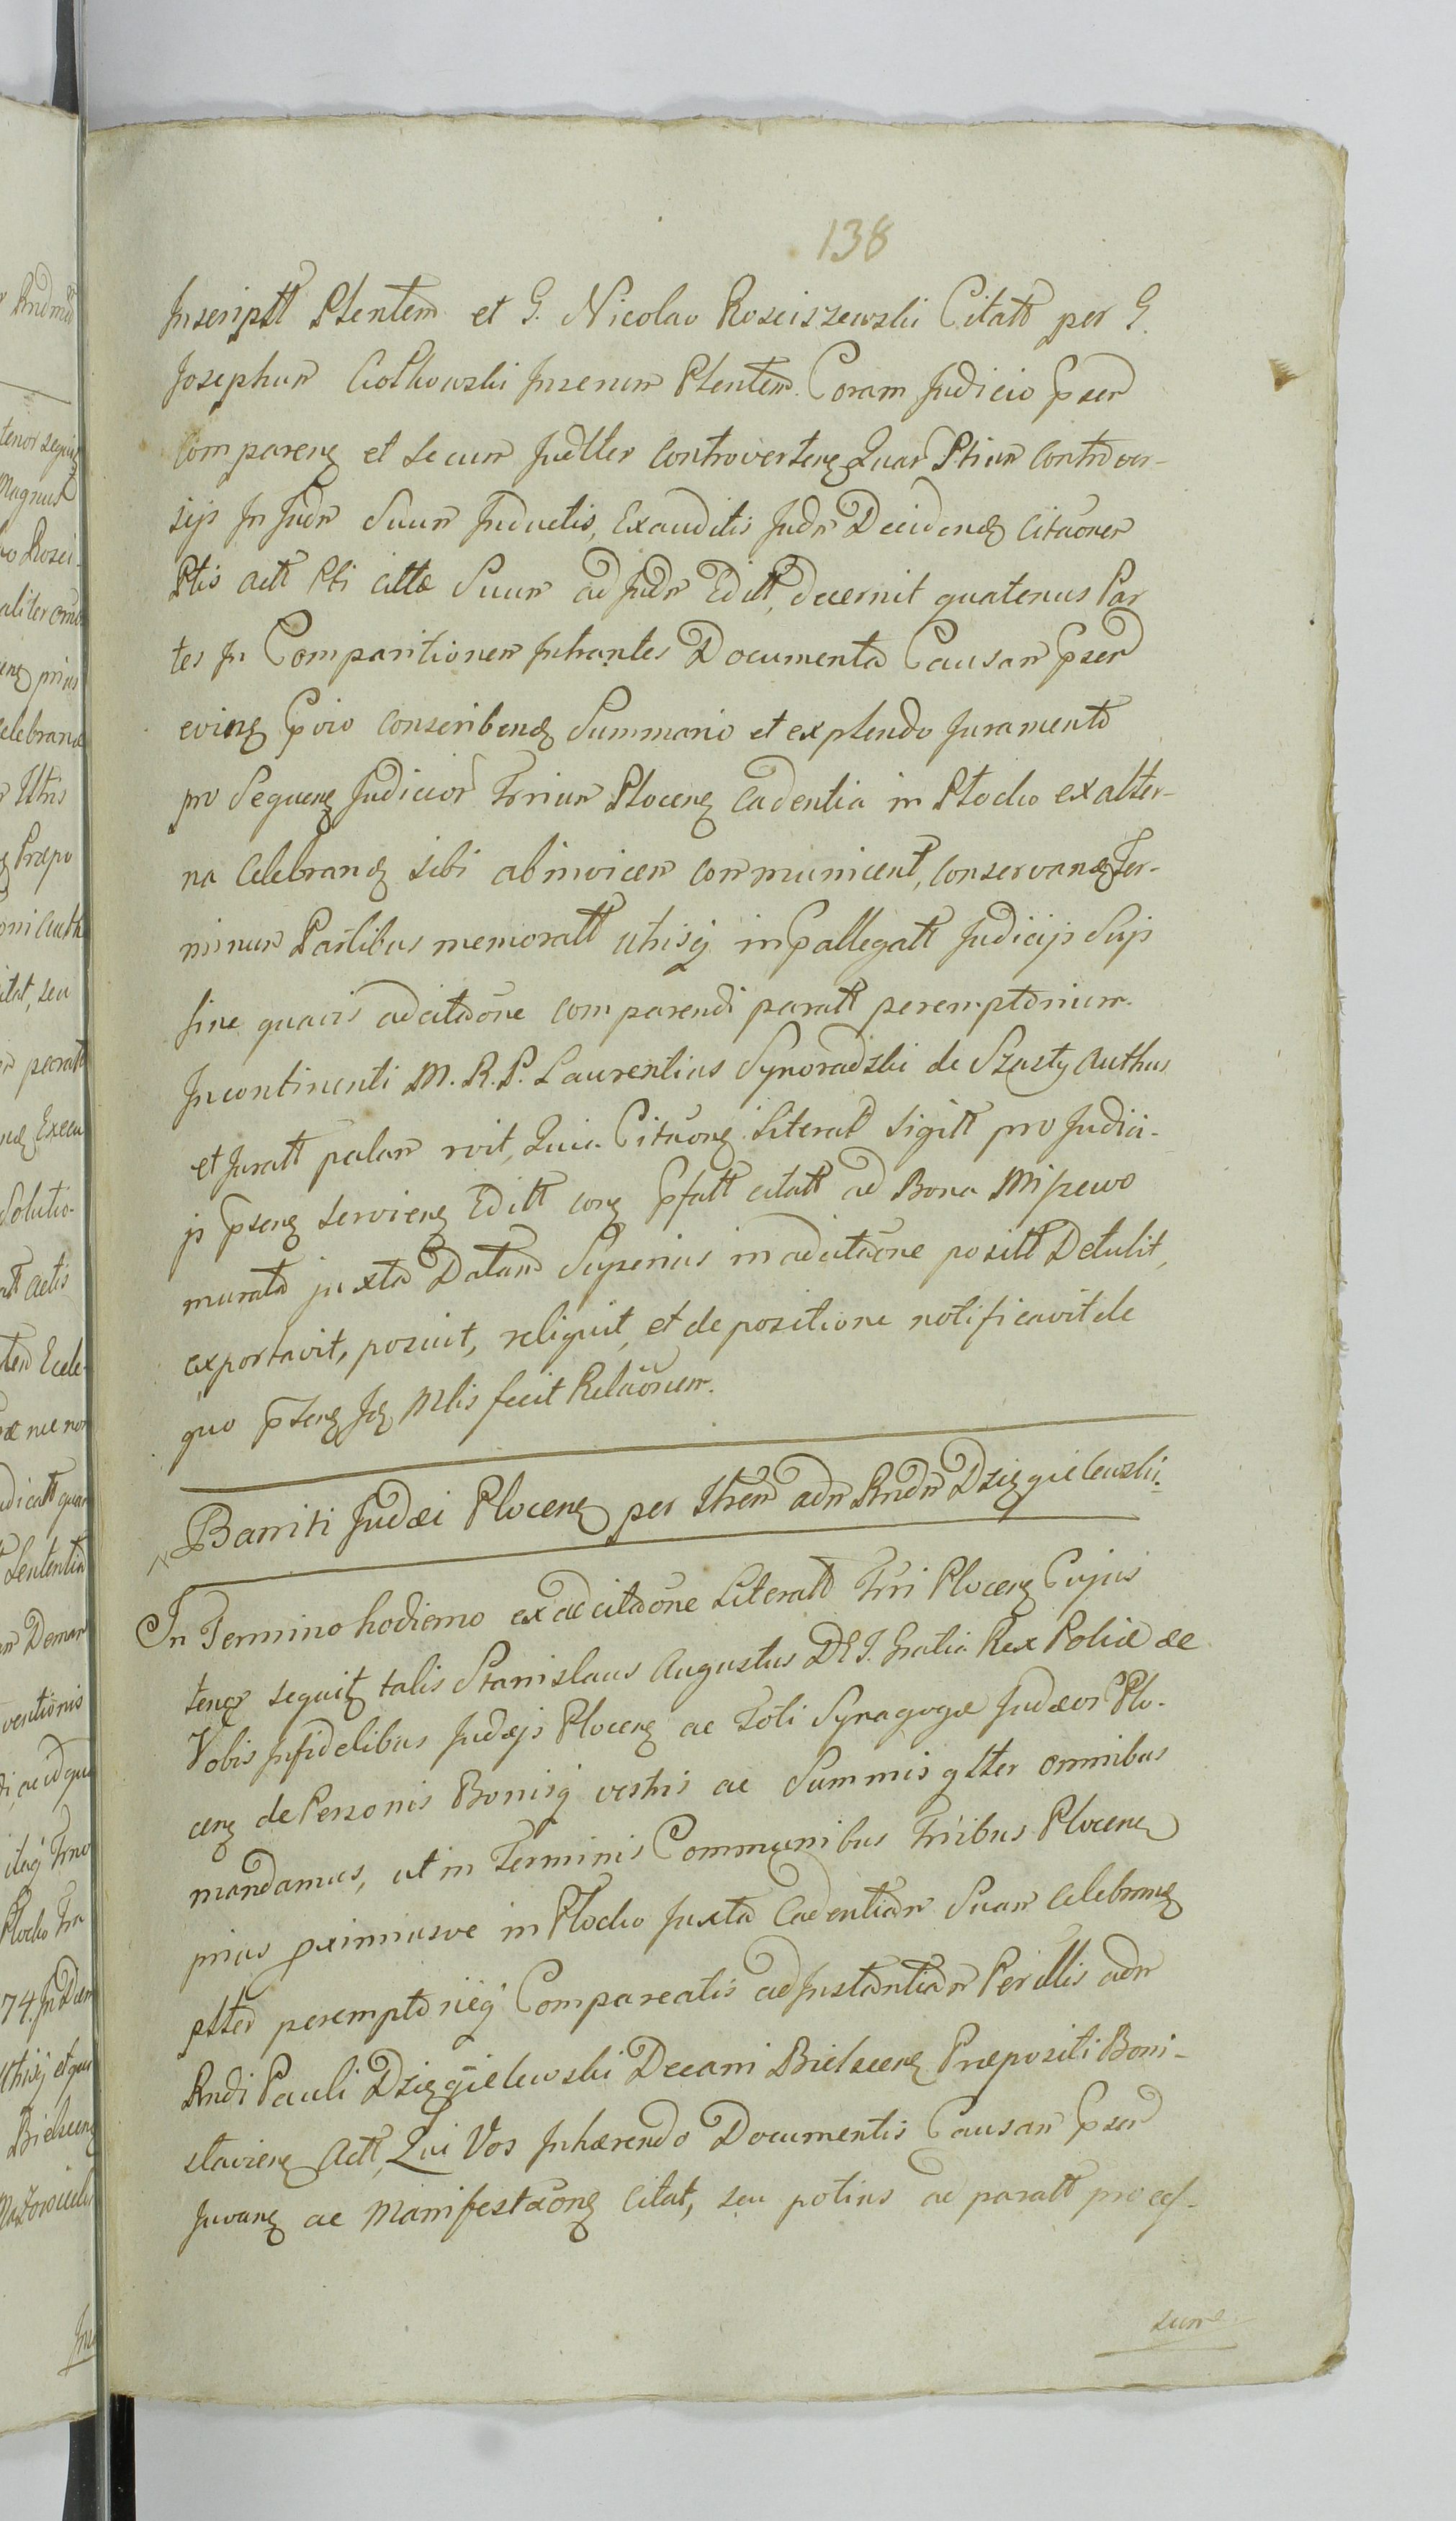 138
Inscriptt Plentem et G. Nicolao Rosciszewski Citatt per G.
Josephum Ciołkowski Inserum Plentem. Coram Judicio p̄sen
Comparenȝ et secum Judtter Controvertenȝ Quar Ptium Controver-
sijs In Judm Suum Inductis, Exauditis Judm Decidendȝ Citãonem
Ptis Actt Pti Citta Suum ad Judm Editt, decernit quatenus Par
tes In Comparitionem Intrantes Documenta Causam p̄sen
evinȝ p̄vio Conscribendȝ Summario et explendo Juramento
pro Sequenȝ Judicior Trrium Plocenȝ Cadentia in Plocko ex alter-
na Celebrandȝ sibi abinvicem Communicent, Conservandȝ Ter-
minum Partibus memoratt utrisqȝ in p̄allegatt Judicijs Suis
sine quavis adcitãone comparendi paratt peremptorium.
Incontinenti M. R. P. Laurentius Synoradzki de Szasty Authus
et Juratt palam rvit, Quia Citãonȝ Literat sigitt pro Judici-
js p̄senȝ servienȝ Editt conȝ p̄fatt citatt ad Bona Mijzewo
murata juxta Datam Superius in adcitãone positt Detulit,
exportavit, posuit, reliquit, et de positione notificavit de
quo p̄senȝ Jȝ Mlis fecit Relãonem.
Banniti Judæi Plocenȝ per Itrem adm Rndm Dzięgielewski.
In Termino hodierno ex adcitãone Literatt Trri Plocenȝ Cujus
tenor sequitȝ talis Stanislaus Augustus DEI Gratia Rex Poliæ &c
Vobis Infidelibus Judæjs Plocenȝ ac Toti Synagogæ Judæor Plo-
cenȝ de Personis Bonisqȝ vestris ac Summis gltter omnibus
mandamus, ut in Terminis Communibus Trribus Plocenȝ
prius pximiusve in Plocko Juxta Cadentiam Suam Celebrandȝ
pltter peremptorieqȝ Compareatis ad Instantiam Perillis adm
Rndi Pauli Dzięgielewski Decani Bielscenȝ Præpositi Boni-
slaviensȝ Actt, Qui Vos Inhærendo Documentis Causam p̄sen
Juvanȝ ac Manifestãonȝ Citat, seu potius ad paratt proces-
sum